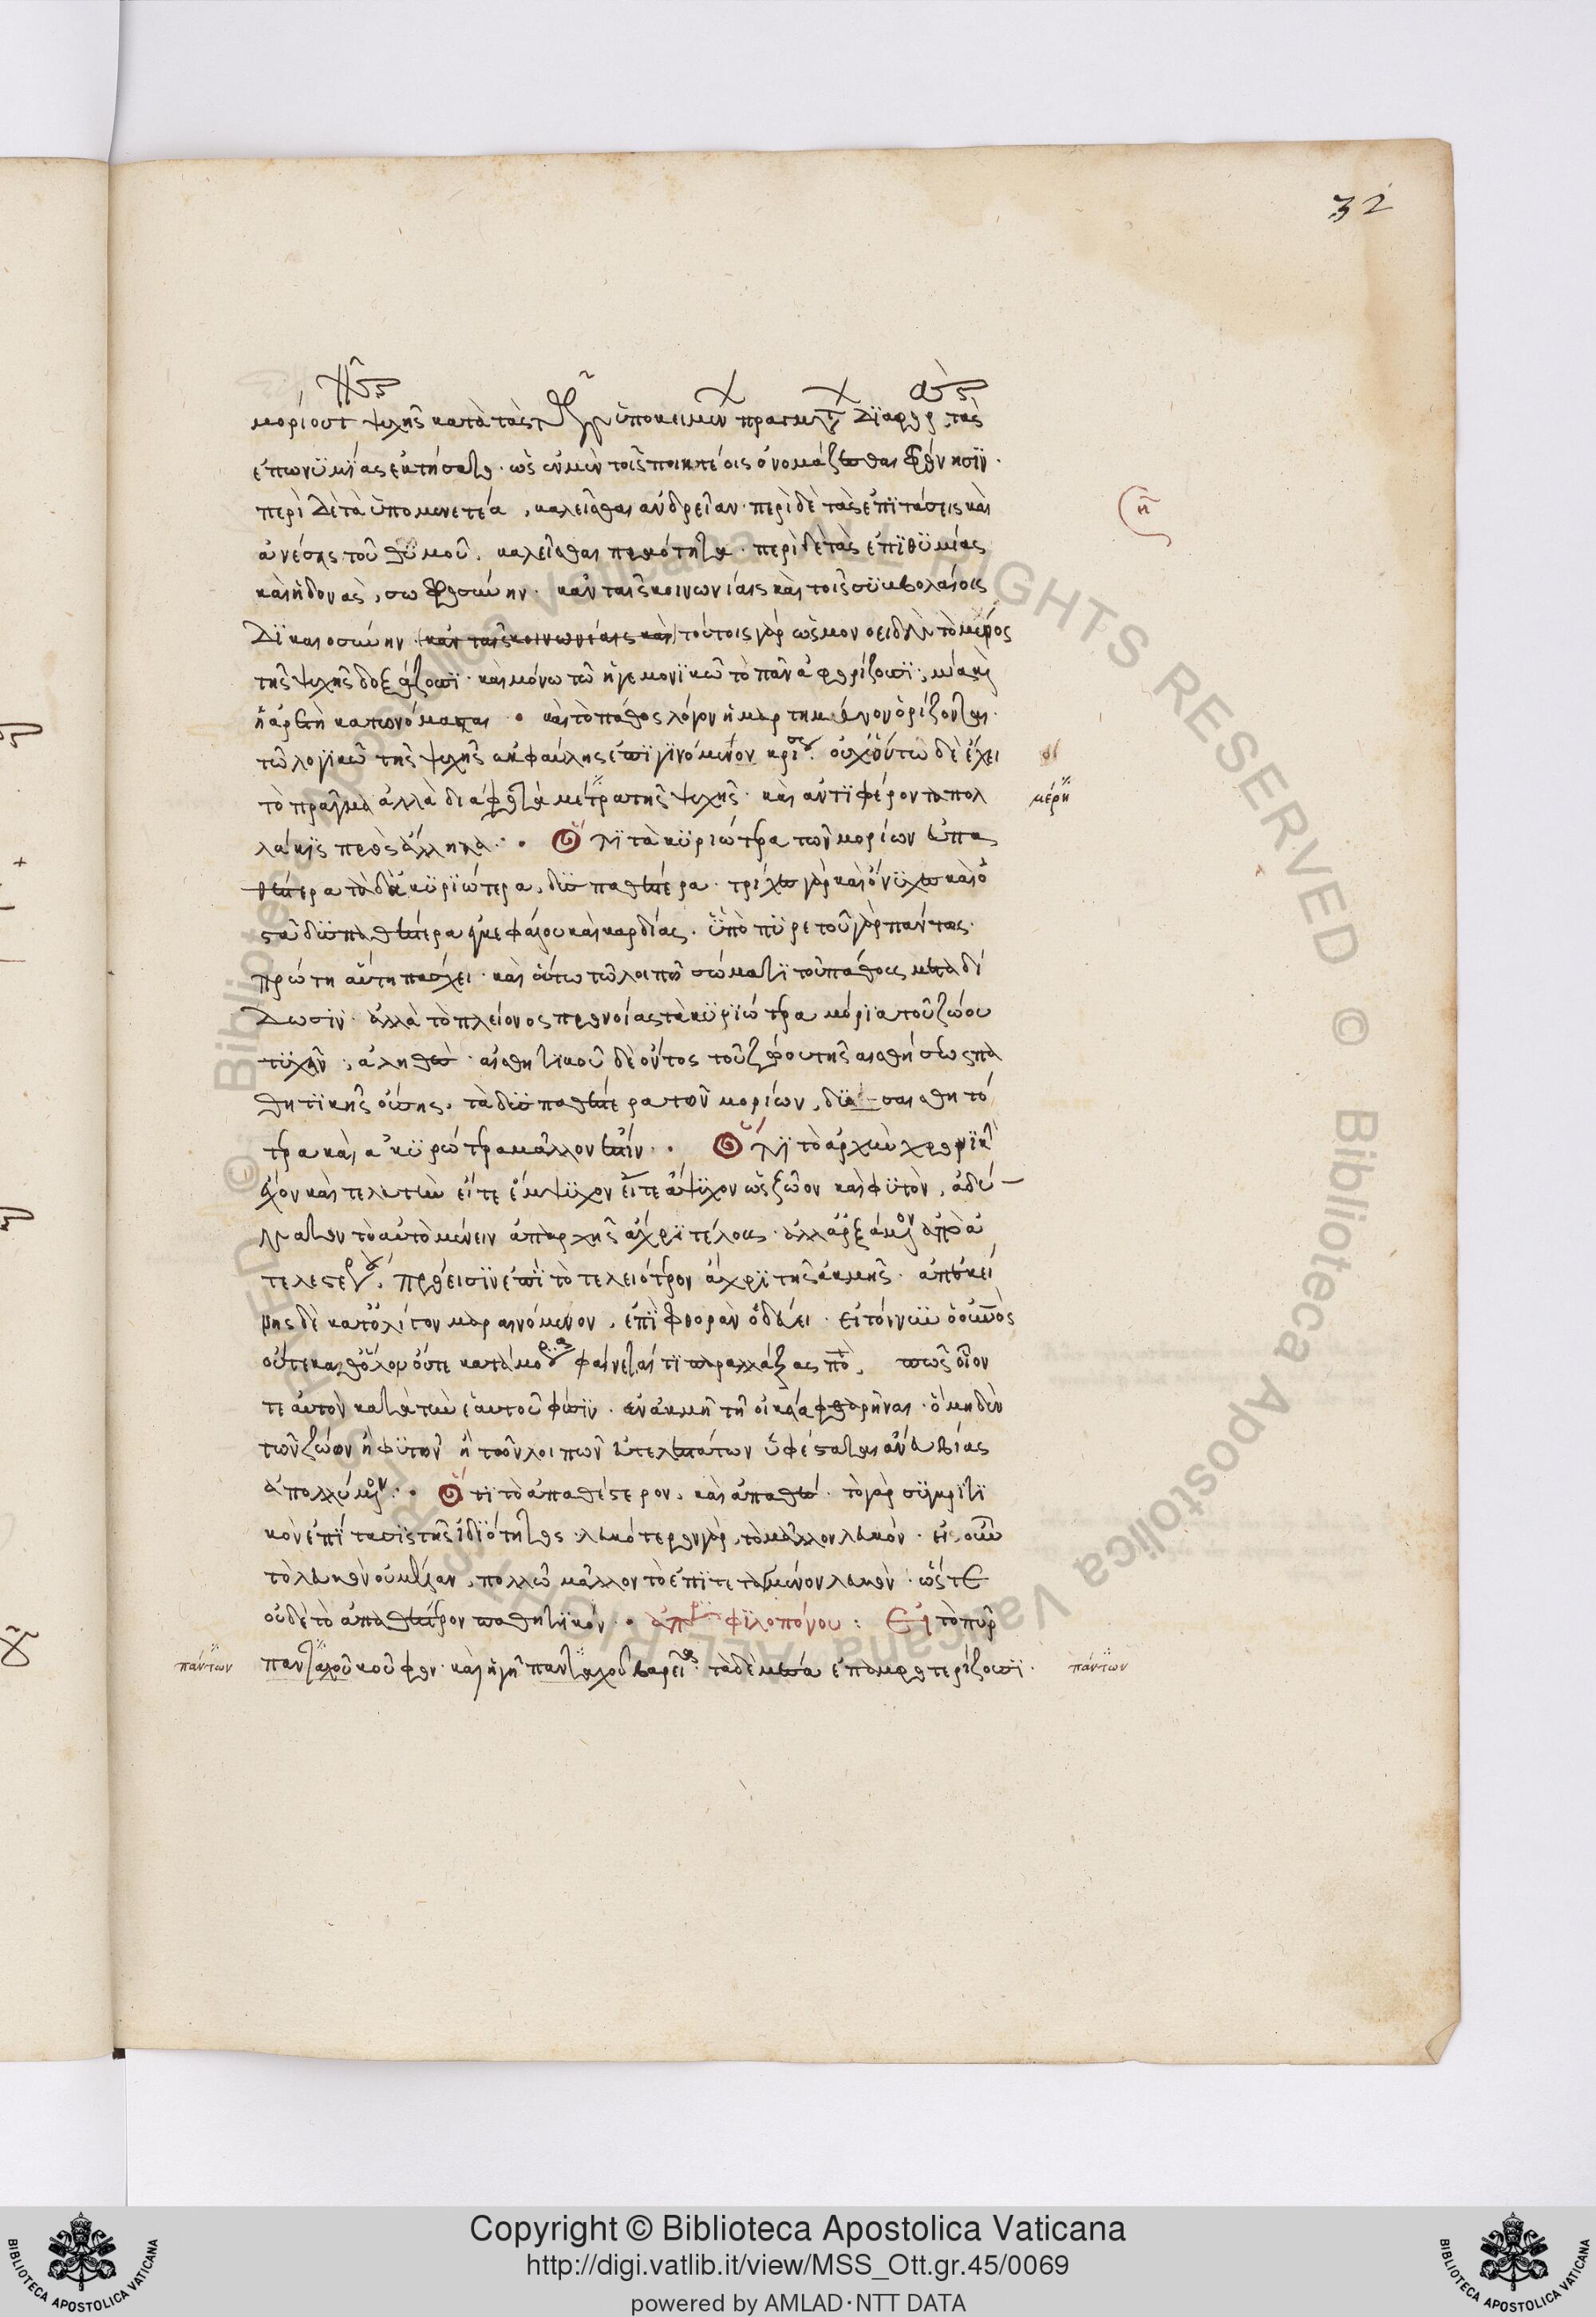 32
μορίου τ ψυχῆς κατὰ τὰς τῶν ὑποκειμένων πραγμάτων διαφορὰς, τὰς
ἐπωνυμίας ἐκτήσατο · ὡς ἐν μὲν τοῖς ποιητέοις ὀνομάζεσθαι φρόνησιν ·
περὶ δὲ τὰ ὑπομενετέα, καλεῖσθαι ἀνδρείαν · περὶ δὲ τὰς ἐπιτάσεις καὶ
ἀνέσεις τοῦ θυμοῦ, καλεῖσθαι πραότητα · περὶ δὲ τὰς ἐπιθυμίας
καὶ ἡδονὰς, σωφροσύνην · κἀν ταῖς κοινωνίαις καὶ τοῖς συμβολαίοις
δικαιοσύνην · κἀν ταῖς κοινωνίαις καὶ τούτοις γὰρ ὡς μονοειδὲς τὸ μέρος
τῆς ψυχῆς δοξάζουσι · καὶ μόνω τῶ ἡγεμονικῶ τὸ πᾶν ἀφορίζουσι ·
ἡ ἀρετὴ κατωνόμασται · καὶ τὸ πάθος λόγον ἡμαρτημένον ὁρίζονται ·
τῶ λογικῶ τῆς ψυχῆς ἐκ φαύλης ἐπιγινόμενον κρίσεως · οὐχ οὕτω δὲ ἔχει
τὸ πρᾶγμα ἀλλὰ διάφορα τὰ μέτρα τῆς ψυχῆς · καὶ ἀντιφέρονται πολ
μέρη
λάκις πρὸς ἄλληλα · Ὅτι τὰ κυριώτερα τῶν μορίων εὐπα
θέστερα τὰ δὲ ἀκυριώτερα, δυσπαθέστερα · τρίχες γὰρ καὶ ὄνυχες καὶ ὀ
στᾶ δυσπαθέστερα ἐγκεφάλου καὶ καρδίας · ὑπὸ πυρετοῦ γὰρ παντὸς
πρώτη αὕτη πάσχει · καὶ οὕτω τῶ λοιπῶ σώματι τοῦ πάθους μεταδί
δωσιν · ἀλλὰ τὸ πλείονος προνοίας τὰ κυριώτερα μόρια τοῦ ζώου
τυχεῖν, ἀληθὲς · αἰσθητικοῦ δὲ ὄντος τοῦ ζώου τῆς αἰσθήσεως πα
θητικῆς οὔσης, τὰ δυσπαθέστερα τῶν μορίων, δυσαισθητό
τερα καὶ ἀκυρώτερα μᾶλλόν ἐστιν · Ὅτι τὸ ἀρχὴν χρονικὴν
ἔχον καὶ τελευτὴν εἴτε ἔμψυχον εἴτε ἄψυχον ὡς ζῶον καὶ φυτὸν, ἀδύ
νατον τὸ αὐτὸ μένειν ἀπ' ἀρχῆς ἄχρι τέλους · ἀλλ' ἀρξάμενον ἀπὸ ἀ
τελεστέρου, πρόεισιν ἐπὶ τὸ τελειότερον ἄχρι τῆς ἀκμῆς · ἀπ' ἐκεί
νης δὲ κατ' ὀλίγον μαραινόμενον, ἐπὶ φθορὰν ὁδεύει · εἰ τοίνυν ὁ οὐρανὸς
οὔτε καθόλου οὔτε κατὰ μόριον φαίνεταί τι παραλλάξας ποτὲ, πῶς οἷόν
τε αὐτὸν κατὰ τὴν ἑαυτοῦ φύσιν · ἐν ἀκμῆ τῆ οἰκεία φθαρῆναι · ὃ μηδὲν
τῶν ζώων ἢ φυτῶν ἢ τῶν λοιπῶν ὑφέσταται ἄνευ βίας
ἀπολλύμενον · Ὅτι τὸ ἀπαθέστερον, καὶ ἀπαθές · τὸ γὰρ συγκριτι
κὸν ἐπίτασις τῆς ἰδιότητος · λευκότερον γὰρ, τὸ μᾶλλον λευκόν · εἰ οὖν
τὸ λευκὸν οὐ μέλαν, πολλῶ μᾶλλον τὸ ἐπιτεταμένον λευκὸν · ὥστε
οὐδὲ τὸ ἀπαθέστερον παθητικόν · ἀπὸ τῶν φιλοπόνου : Εἰ τὸ πῦρ
πάντων πανταχοῦ κοῦφον · καὶ ἡ γῆ πανταχοῦ βαρεῖα · τὰ δὲ μέσα ἐπαμφοτερίζουσι · πάντων
Copyright © Biblioteca Apostolica Vaticana
http://digi.vatlib.it/view/MSS_Ott.gr.45/0069
powered by AMLAD·NTT DATA
BIBLIOTECA APOSTOLICA VATICANA
BIBLIOTECA APOSTOLICA VATICANA